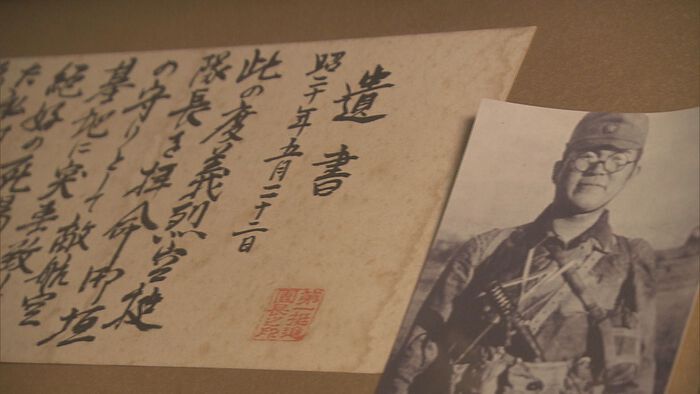 遺書
昭二十年五月二十二日
此の度義烈空挺
隊長を拝命御垣
の守りとして敵航空
基地に突撃致し
絶好の死場
た私は
第一挺進
団長之印